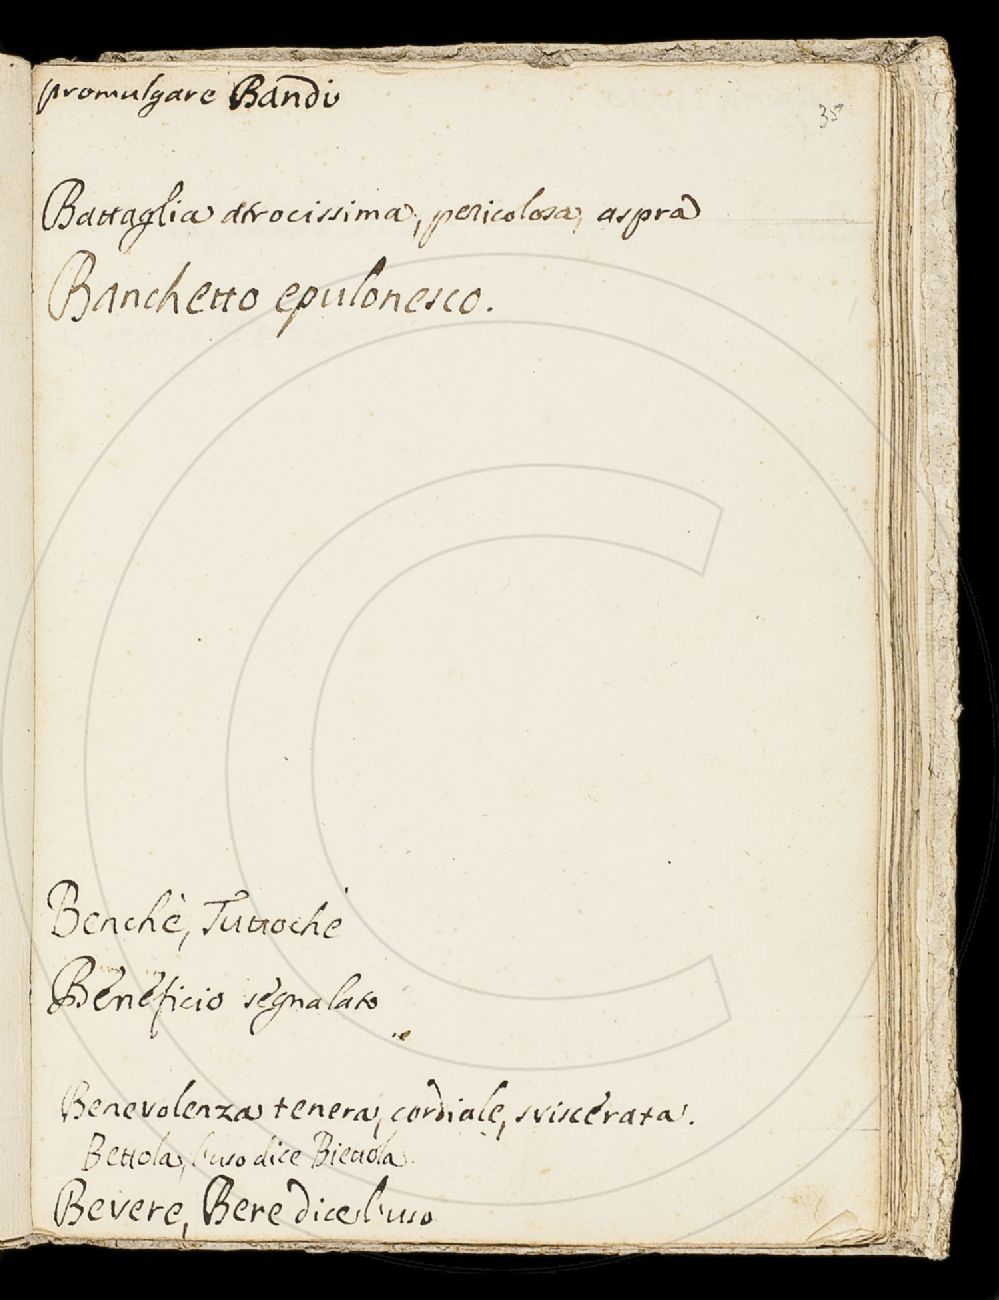 promulgare Bandi
35
Battaglia atrocissima, pericolosa, aspra
Banchetto epulonesco.
Benchè, Tuttoche
Beneficio segnalato
Benevolenza tenera, cordiale, sviscerata.
Bettola, l'uso dice Biettola.
Bevere, Bere dice l'uso